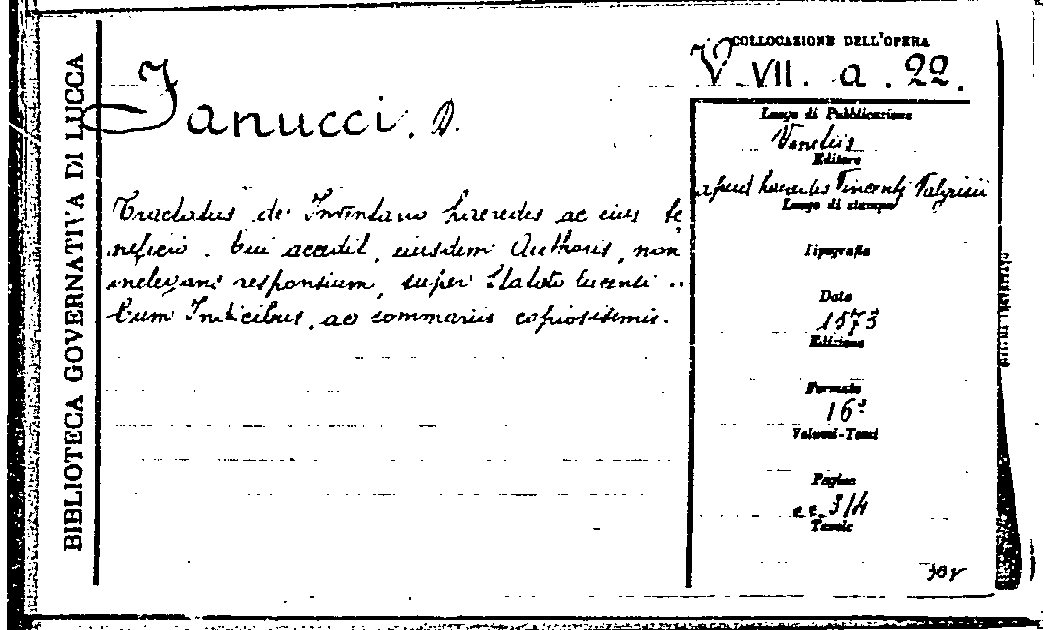 BIBLIOTECA GOVERNATIVA DI LUCCA
COLLOCAZIONE DELL'OPERA
V. VII. a. 22.
Janucci. D.
Tractatus de Inventario haeredis ac eius be
neficio. Cui accedit, eiusdem Authoris, non
inelegans responsium, super Statuto lucensi ..
Cum Indicibus, ac sommariis copiosissimis.
Luogo di Pubblicazione
Venetiis
Editore
apud haeredes Vincenti Valgrisii
Luogo di stampa
Tipografia
Data
1573
Edizione
Formato
16°
Volumi-Tomi
Pagine
cc. 314
Tavole